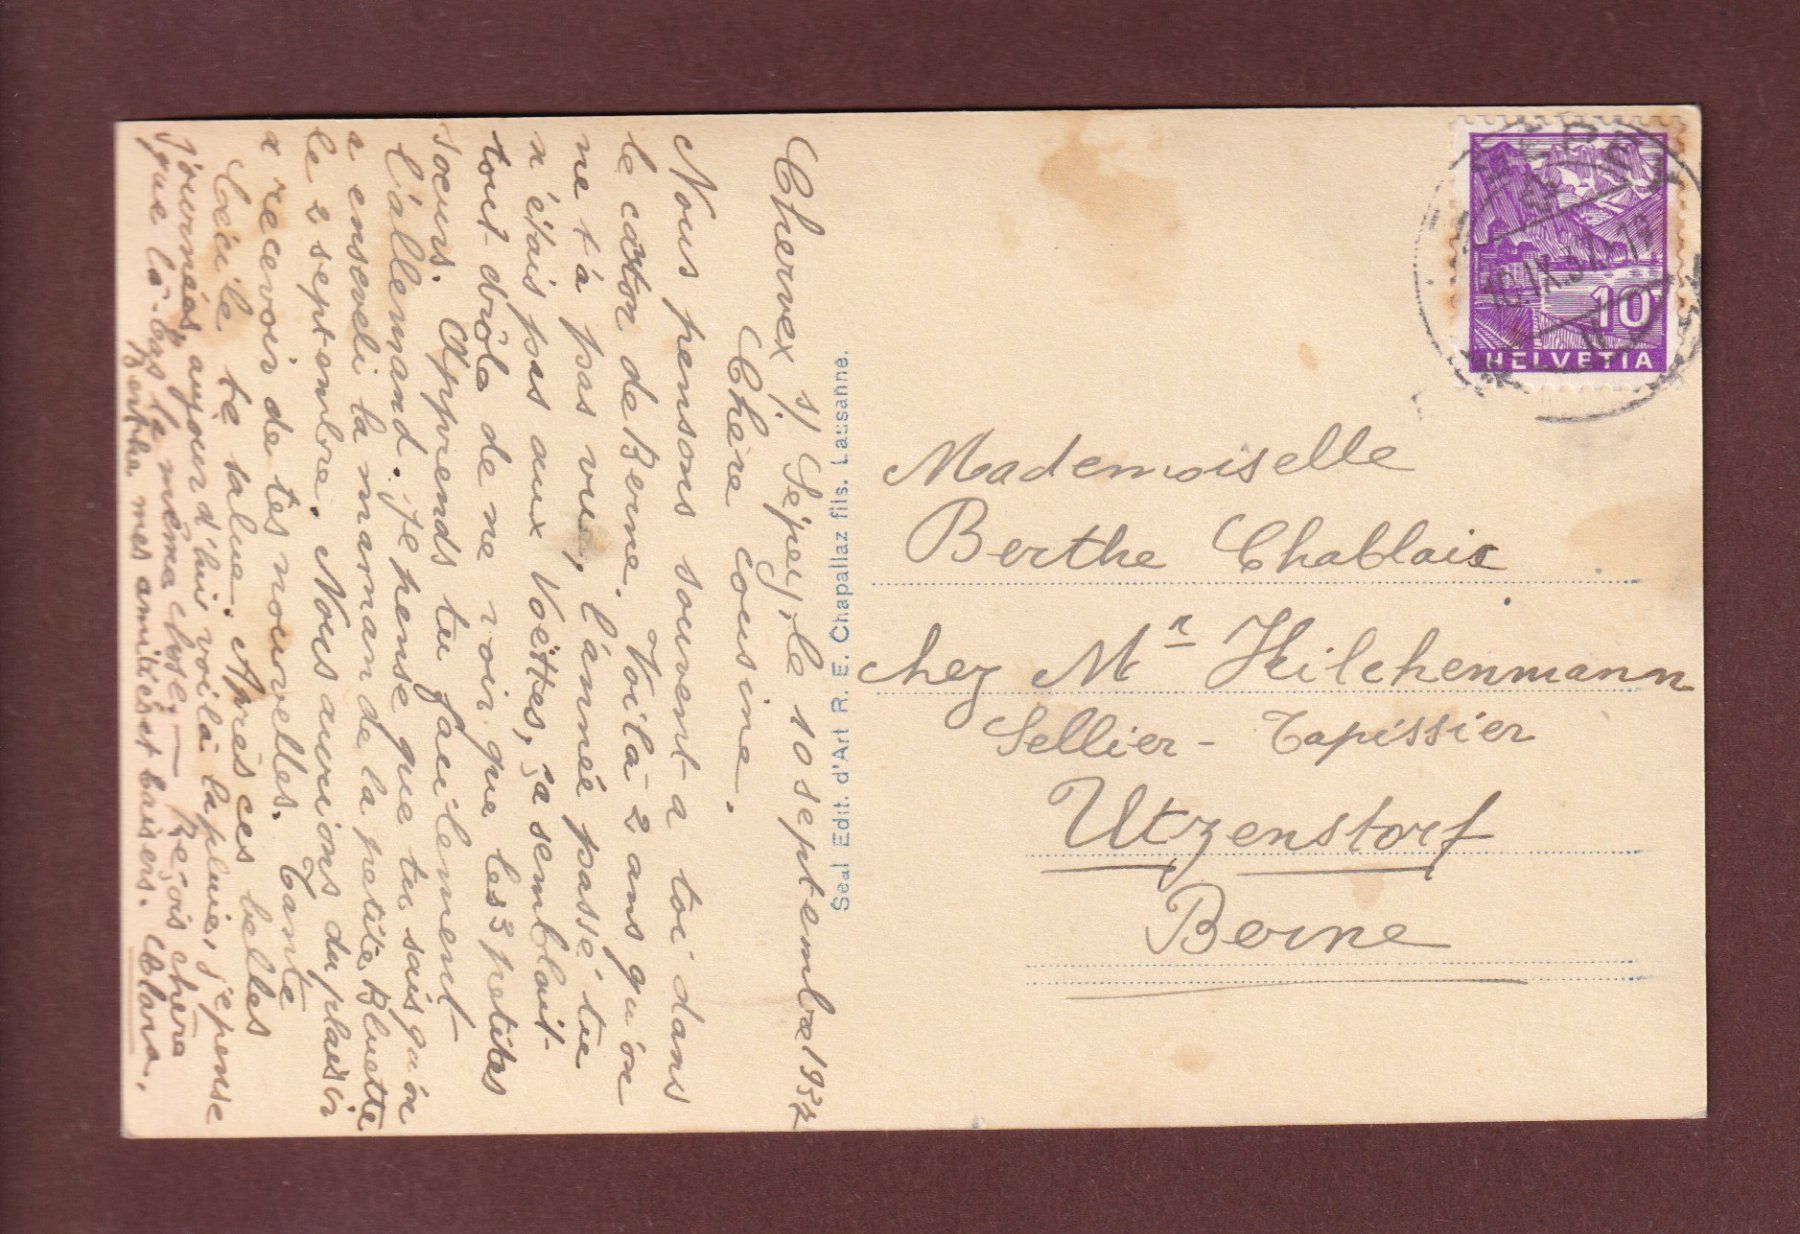 Chervex s/ Sépey, le 10 septembre 1937
Chère cousine.
Nous pensons souvent a toi dans
le caton de Berne. Voilà 2 ans qu'on
ne t'a pas vue, l'année passé tu
n'étais pas aux Voëttes, ça semblait
tout drôle de ne voir que les 3 petites
soeurs. Apprends tu facilement
l'allemand. Je pense que tu sais qu'on
a enseveli la marraine de la petite Bluette
le 2 septembre. Nous aurions du plaisir
a recevoir de tes nouvelles. Tante
Cécile te salue. Après ces belles
journées, aujourd'hui voilà la pluie, je pense
que là-bas le même chose; — Reçois chère
Berthe mes amitiés et baisers. Clara.
Seal Edit. d'Art R. E. Chapallaz fils. Lausanne.
10. IX. 37. - 19
10
HELVETIA
Mademoiselle
Berthe Chablaix
chez Mr Hilchenmann
Sellier - Tapissier
Utzenstorf
Berne